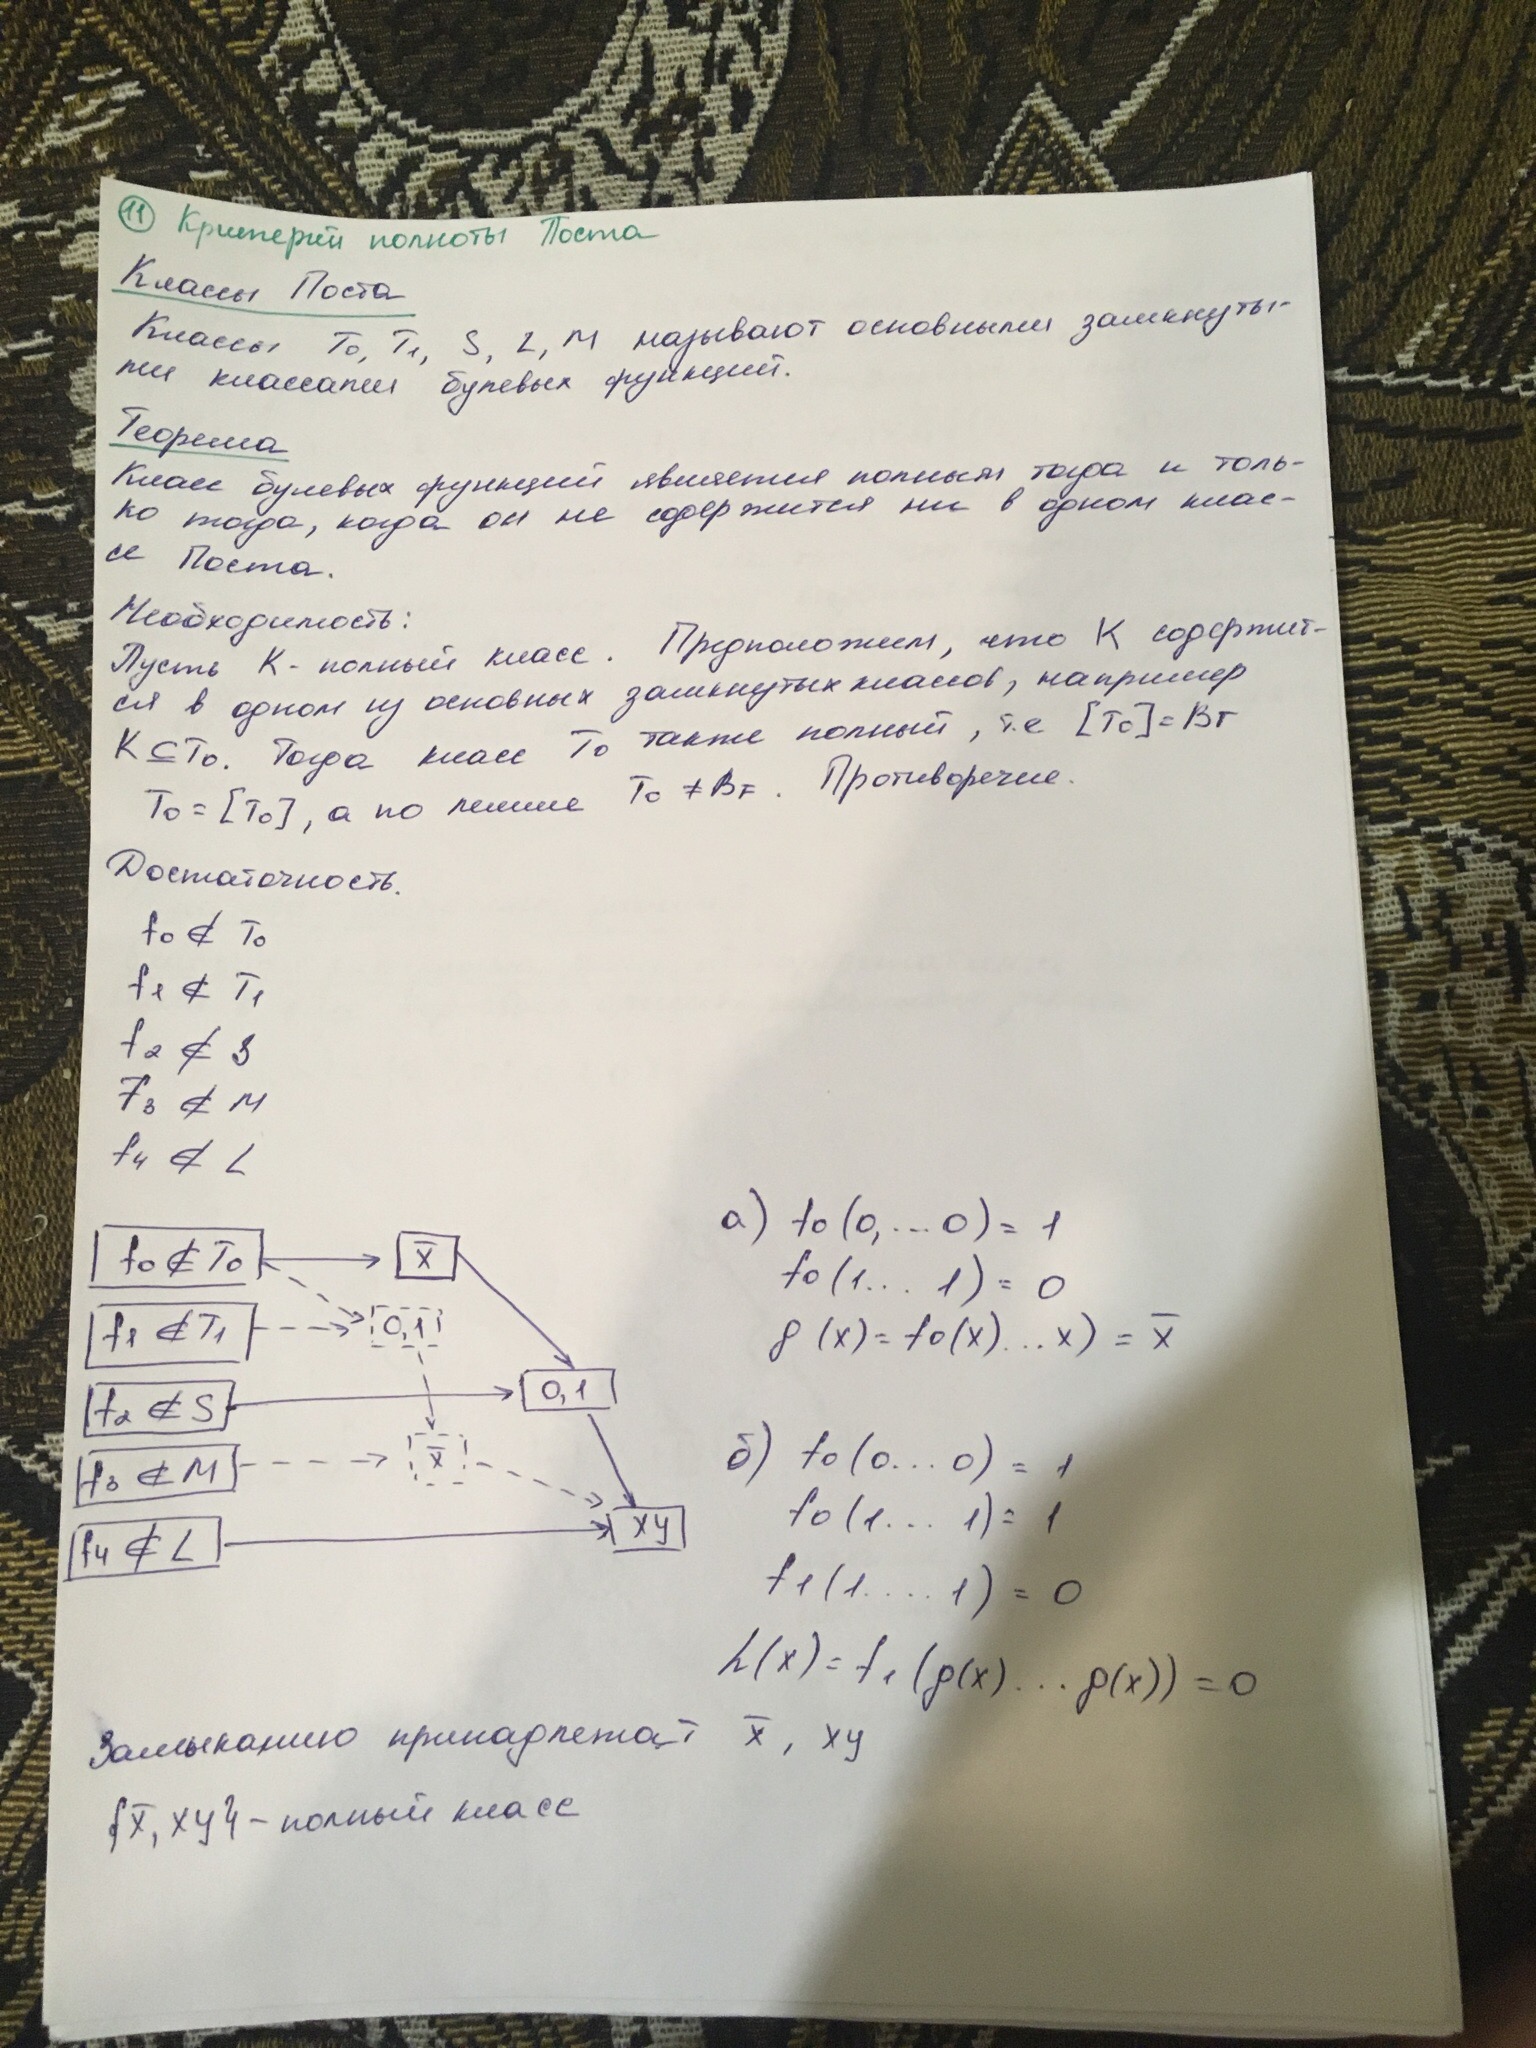 11 Критерий полноты Поста
Классы Поста
Классы T0, T1, S, L, M называют основными замкнуты-
ми классами булевых функций.
Теорема
Класс булевых функций является полным тогда и толь-
ко тогда, когда он не содержится ни в одном клас-
се Поста.
Необходимость:
Пусть K - полный класс. Предположим, что K содержит-
ся в одном из основных замкнутых классов, например
K ⊆ T0. Тогда класс T0 также полный, т.е [T0] = BF
T0 = [T0], а по лемме T0 ≠ BF. Противоречие.
Достаточность.
f0 ⊄ T0
f1 ⊄ T1
f2 ⊄ S
f3 ⊄ M
f4 ⊄ L
f0 ⊄ T0
x̄
f1 ⊄ T1
0,1
f2 ⊄ S
0,1
f3 ⊄ M
x̄
f4 ⊄ L
xy
а) f0(0,...0) = 1
f0(1... 1) = 0
g(x) = f0(x)...x) = x̄
б) f0(0...0) = 1
f0(1... 1) = 1
f1(1.... 1) = 0
h(x) = f1(g(x)...g(x)) = 0
Замыканию принадлежат x̄, xy
{x̄, xy} - полный класс